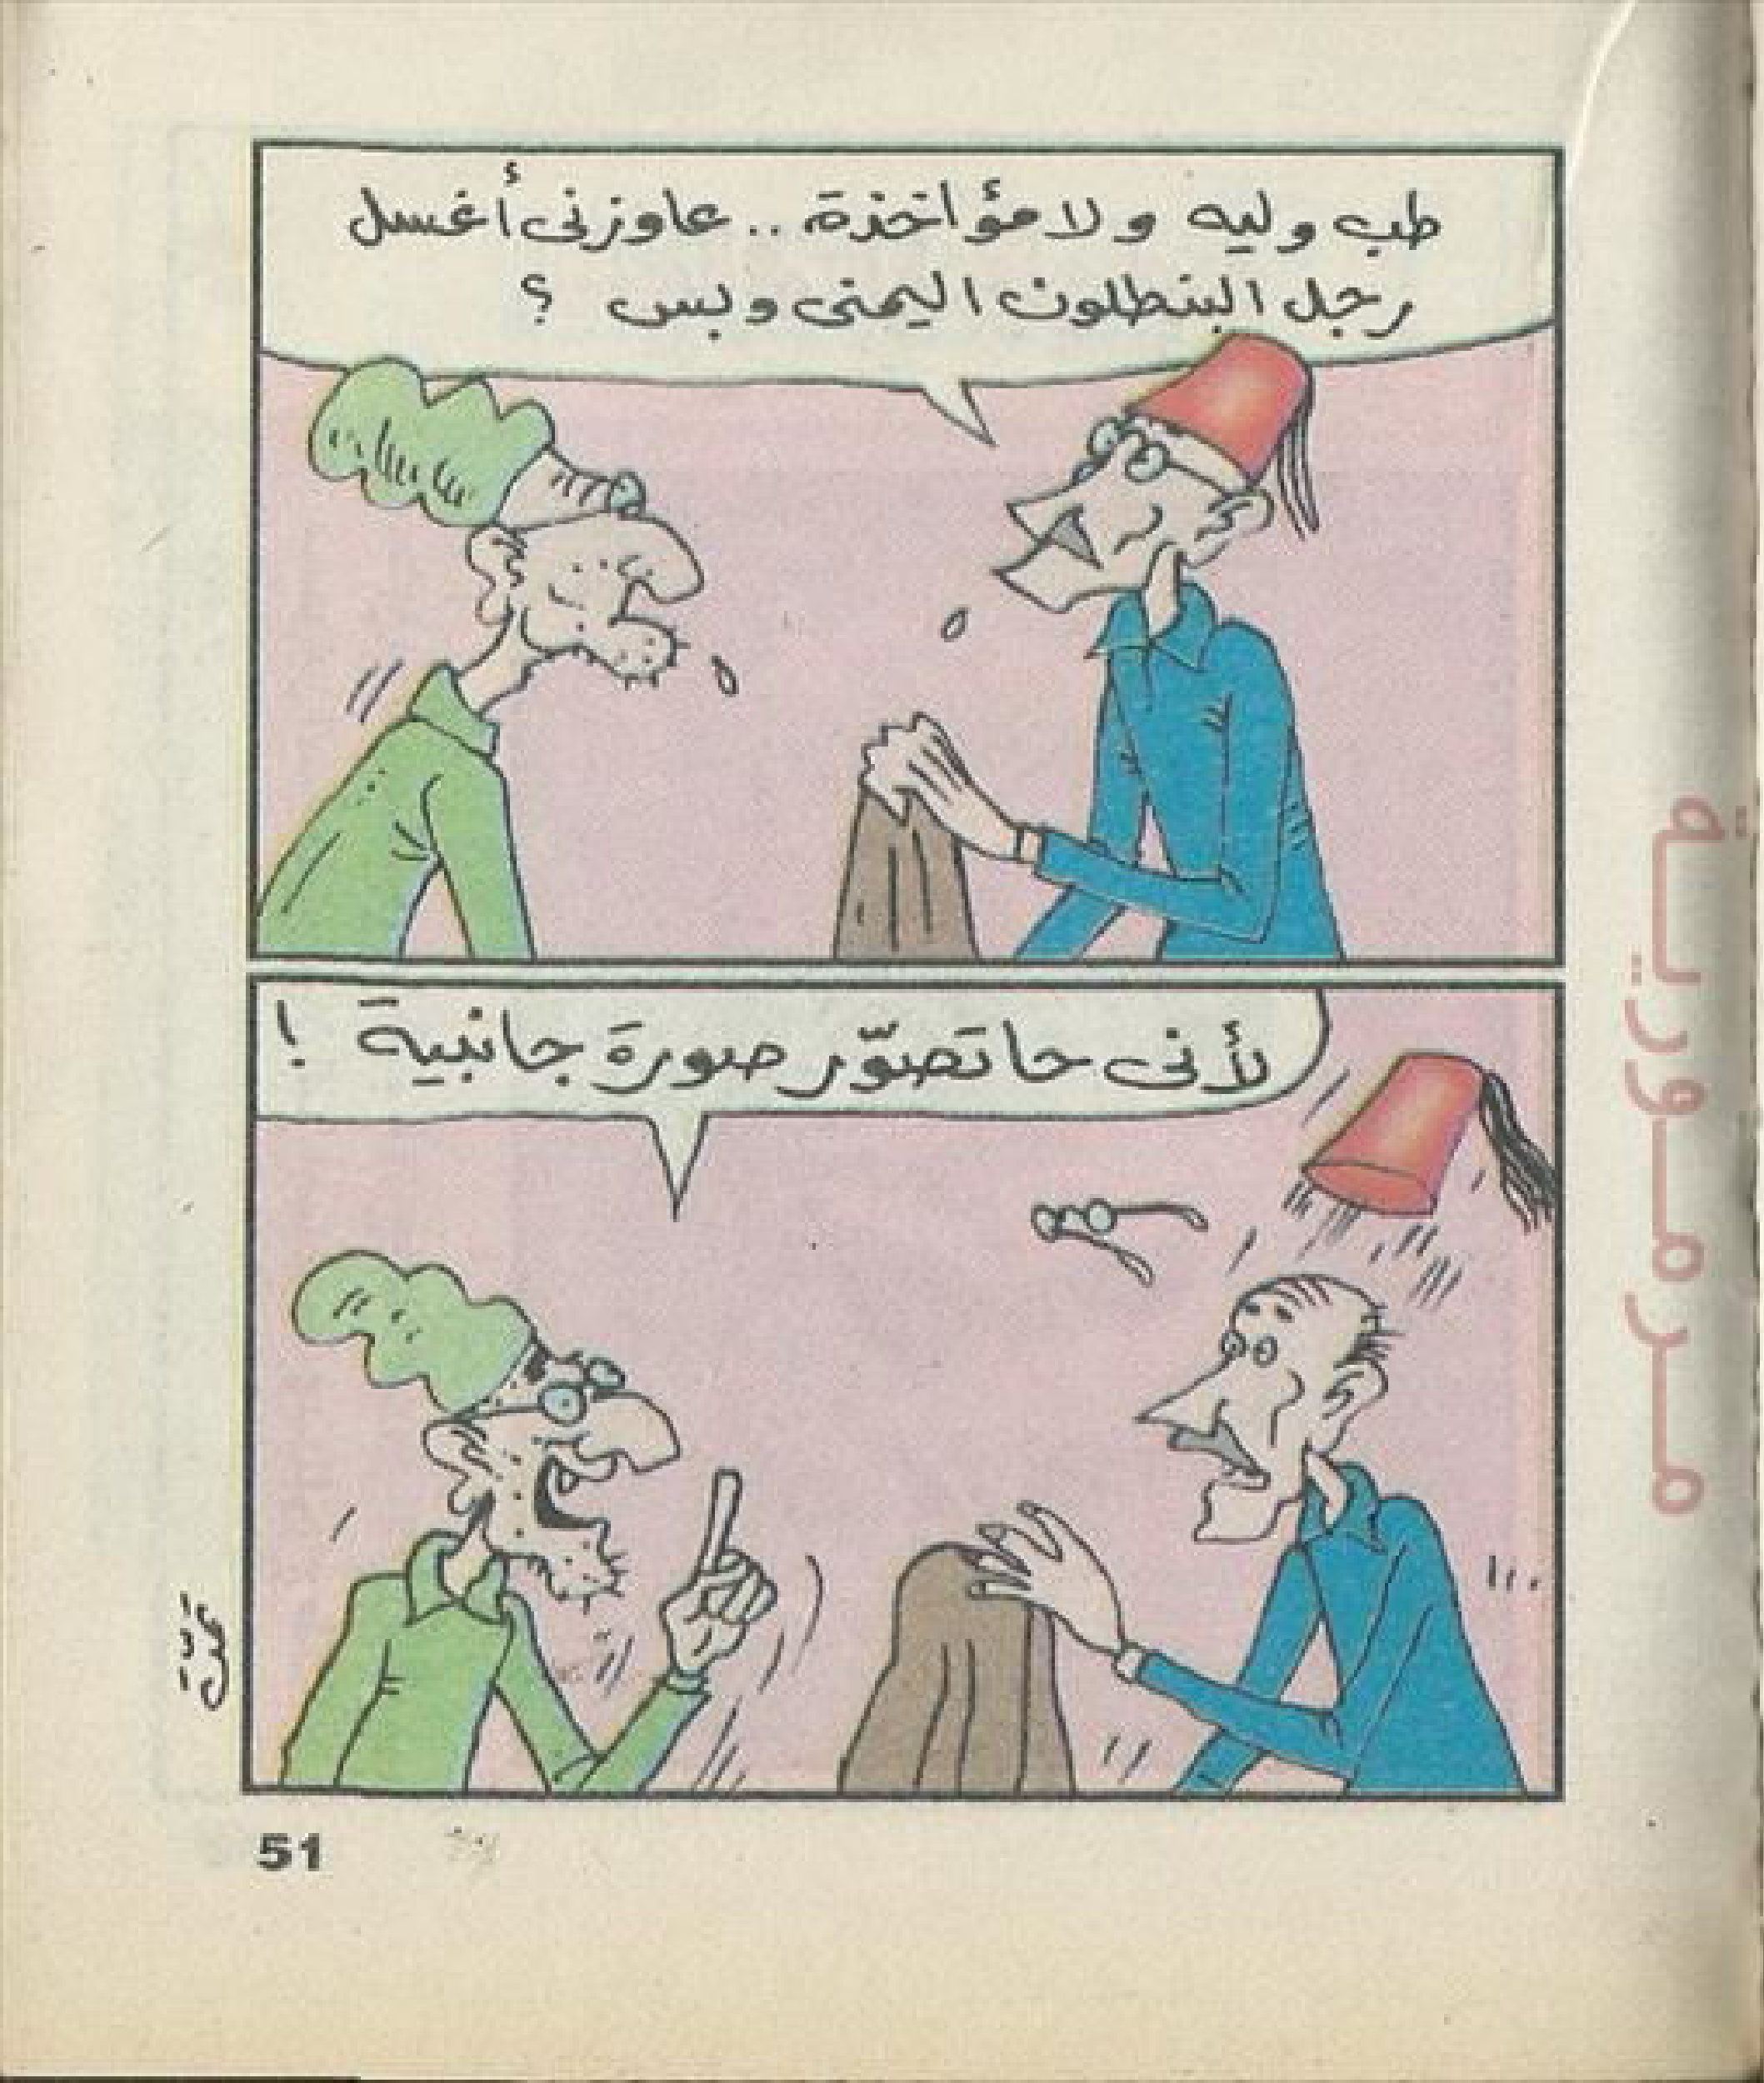 طب وليه ولا مؤاخذة .. عاوزنى أغسل
رجل البنطلون اليمنى وبس ؟
لأنى حا تصوّر صورة جانبية !
51
مرمورية